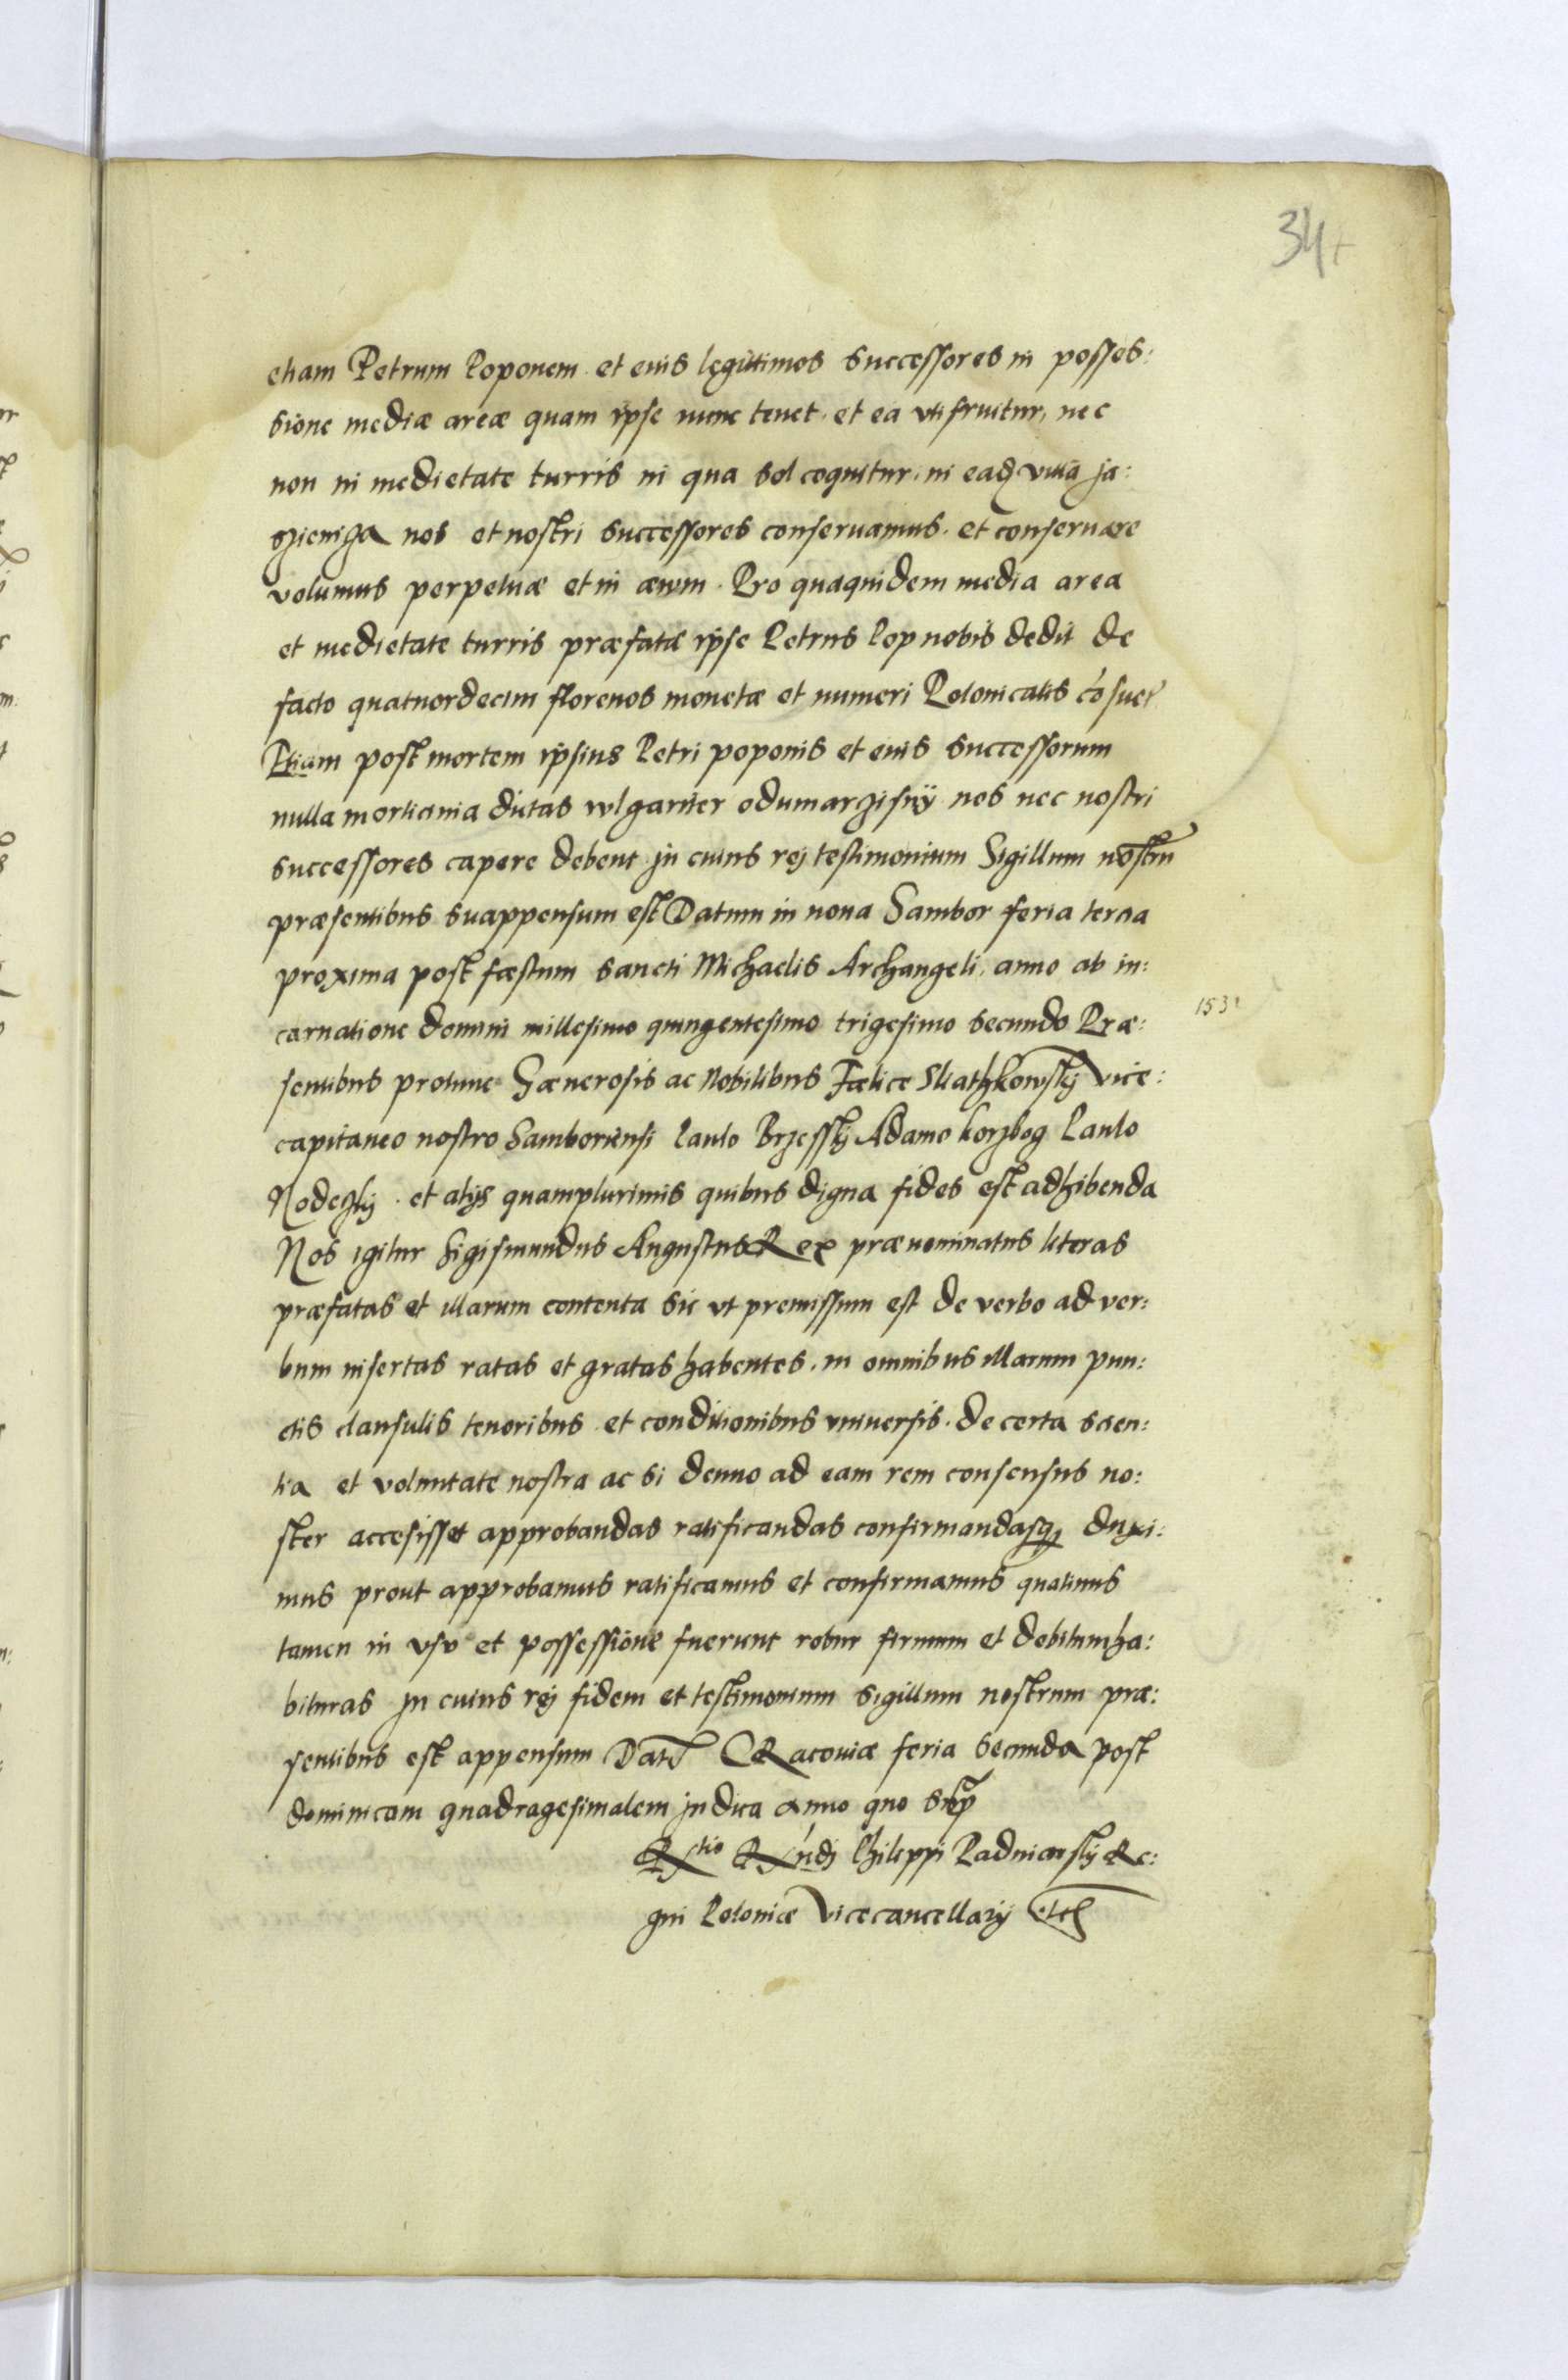 34
etiam Petrum Poponem et eius legittimos successores in posses:
sione mediæ areæ quam ipse nunc tenet, et ea vti fruitur, nec
non in medietate turris in qua sol coquitur, in eadq villa Ja:
nos et nostri successores conseruamus, et conseruare
volumus perpetuæ et in æwm. Pro quaquidem media area
et medietate turris præfatæ ipse Petrus Pop nobis dedit de
facto quatuordecim florenos monetæ et numeri Polonicalis cosuet
Etiam post mortem ipsius Petri poponis et eius successorum
nulla morticinia dictas wlgariter odumarzisnÿ nos nec nostri
successores capere debent Jn cuius rej testimonium Sigillum nostru
præsentibus suappensum est Datum in noua Sambor feria tercia
proxima post fæstum sancti Michaelis Archangeli, anno ab in:
carnatione domini millesimo quingentesimo trigesimo secundo Præ:
1532
sentibus protunc Gænerosis ac Nobilibus Fœlice Sliathkowskÿ vice:
capitaneo nostro Samboriensi Paulo Brzesskÿ Adamo Korzbog Paulo
et alijs quamplurimis quibus digna fides est adhibenda
Nos igitur Sigismundus Augustus Rex prænominatus literas
præfatas et illarum contenta sic vt premissum est de verbo ad ver:
bum insertas ratas et gratas habentes, in omnibus illarum pun:
ctis clausulis tenoribus et conditionibus vniuersis, de certa scien:
tia et voluntate nostra ac si denuo ad eam rem consensus no:
ster accesisset approbandas ratificandas confirmandasq duxi:
mus prout approbamus ratificamus et confirmamus quatinus
tamen in vsu et possessione fuerunt robur firmum et debitum ha:
bituras Jn cuius rej fidem et testimonium sigillum nostrum præ:
sentibus est appensum Dat CRacouiæ feria Secunda post
dominicam quadragesimalem Judica Anno quo sup
Rtio Rndj Philippi Padniewskÿ Re:
gni Poloniæ Vicecancellarij etc